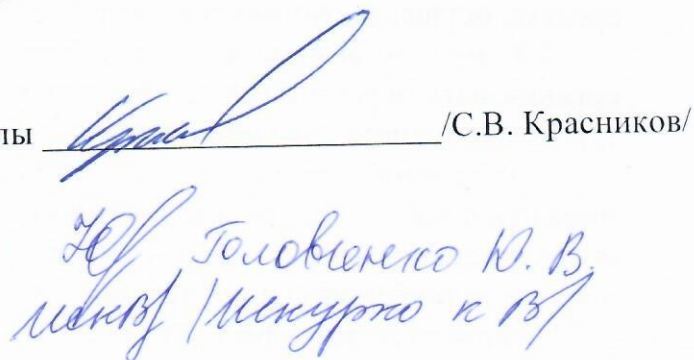 лы /С.В. Красников/
Головченко Ю. В.
/Шкурко К В/